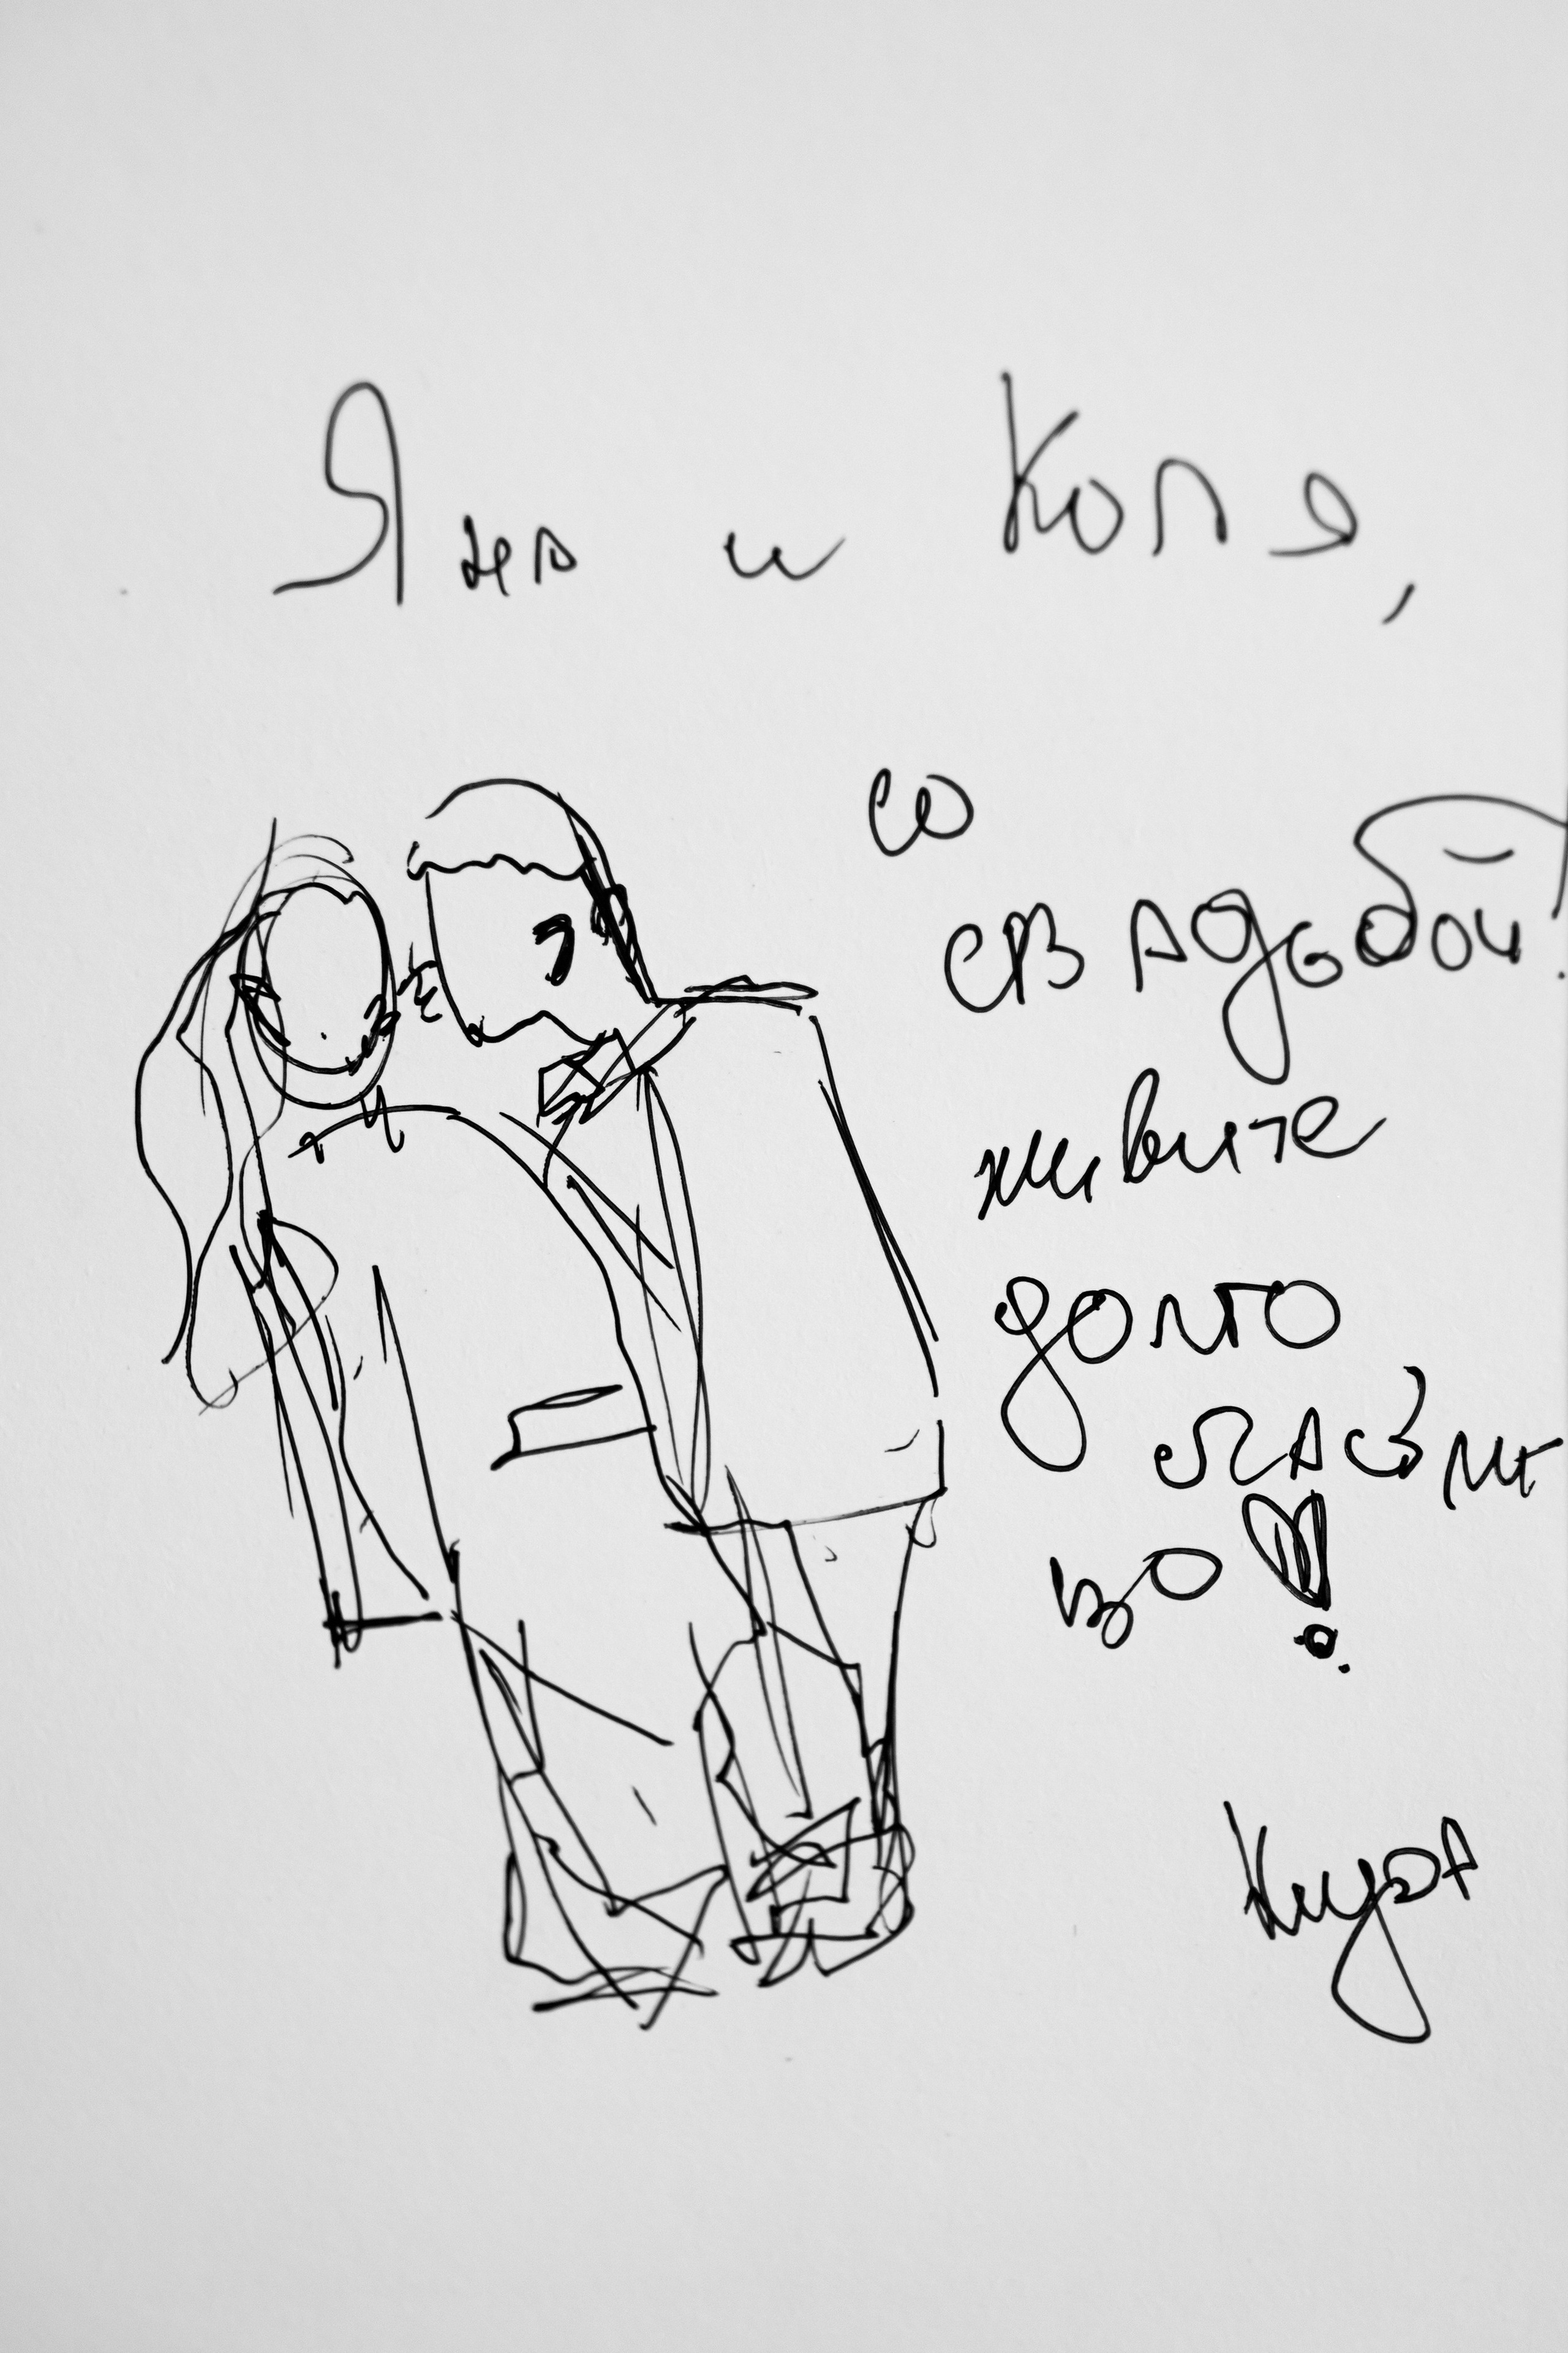 Яна и Коля,
со
свадьбой!
живите
долго
счастли
во!